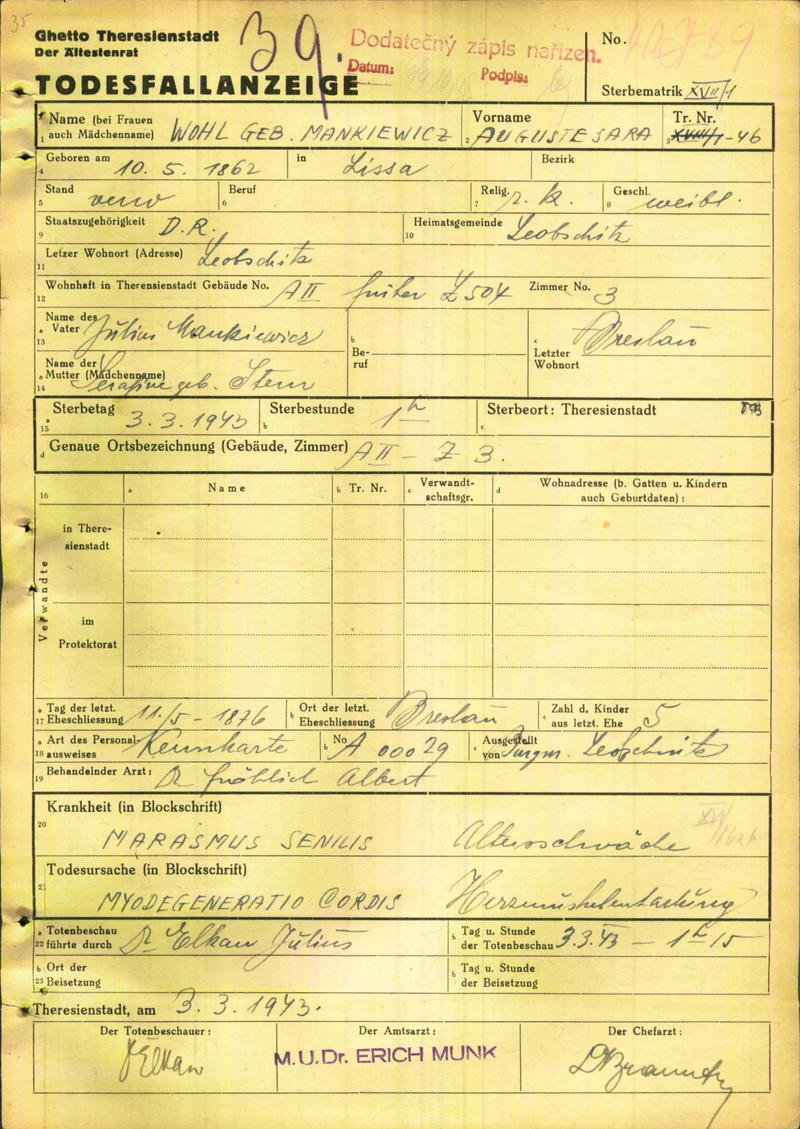 35
Ghetto Theresienstadt
Der Ältestenrat
39.
Dodatečný zápis nařízen.
Datum:
Podpis:
No.
TODESFALLANZEIGE
Sterbematrik XVII/1
Name (bei Frauen auch Mädchenname) WOHL GEB. MANKIEWICZ
1
Vorname
2 AUGUSTE SARA
Tr. Nr.
3 XVIII/1-46
Geboren am
4 10. 5. 1862
in Lissa
Bezirk
Stand
5 verw
Beruf
6
Relig.
7 r. k.
Geschl.
8 weibl.
Staatszugehörigkeit
9 D.R.
Heimatsgemeinde
10 Leobschitz
Letzer Wohnort (Adresse)
11 Leobschitz
Wohnhaft in Theresienstadt Gebäude No.
12 A II Z 504
Zimmer No. 3
Name des
a Vater Julius Mankiewicz
13
b
Be-
ruf
c
Letzter
Wohnort Breslau
Name der
a Mutter (Mädchenname)
14 Serafine geb. Stern
Sterbetag
a
15 3. 3. 1943
Sterbestunde
b 1 h
Sterbeort: Theresienstadt
c
d Genaue Ortsbezeichnung (Gebäude, Zimmer) A II - Z 3.
16
a Name
b Tr. Nr.
c Verwandt-
schaftsgr.
d Wohnadresse (b. Gatten u. Kindern
auch Geburtdaten):
Verwandte
in There-
sienstadt
im
Protektorat
a Tag der letzt.
17 Eheschliessung 11./5 - 1876
b Ort der letzt.
Eheschliessung Breslau
c Zahl d. Kinder
aus letzt. Ehe 5
a Art des Personal-
18 ausweises Kennkarte
b No A 00029
c Ausgestellt
von Leobschütz
Behandelnder Arzt:
19 Dr Fröhlich Albert
Krankheit (in Blockschrift)
20
MARASMUS SENILIS Altersschwäche
Todesursache (in Blockschrift)
21
MYODEGENERATIO CORDIS Herzmuskelentartung
a Totenbeschau
22 führte durch Dr Elkan Julius
b Tag u. Stunde
der Totenbeschau 3.3.43 - 1 h 15
b Ort der
23 Beisetzung
b Tag u. Stunde
der Beisetzung
Theresienstadt, am 3. 3. 1943.
Der Totenbeschauer:
Der Amtsarzt:
Der Chefarzt:
Elkan
M.U.Dr. ERICH MUNK